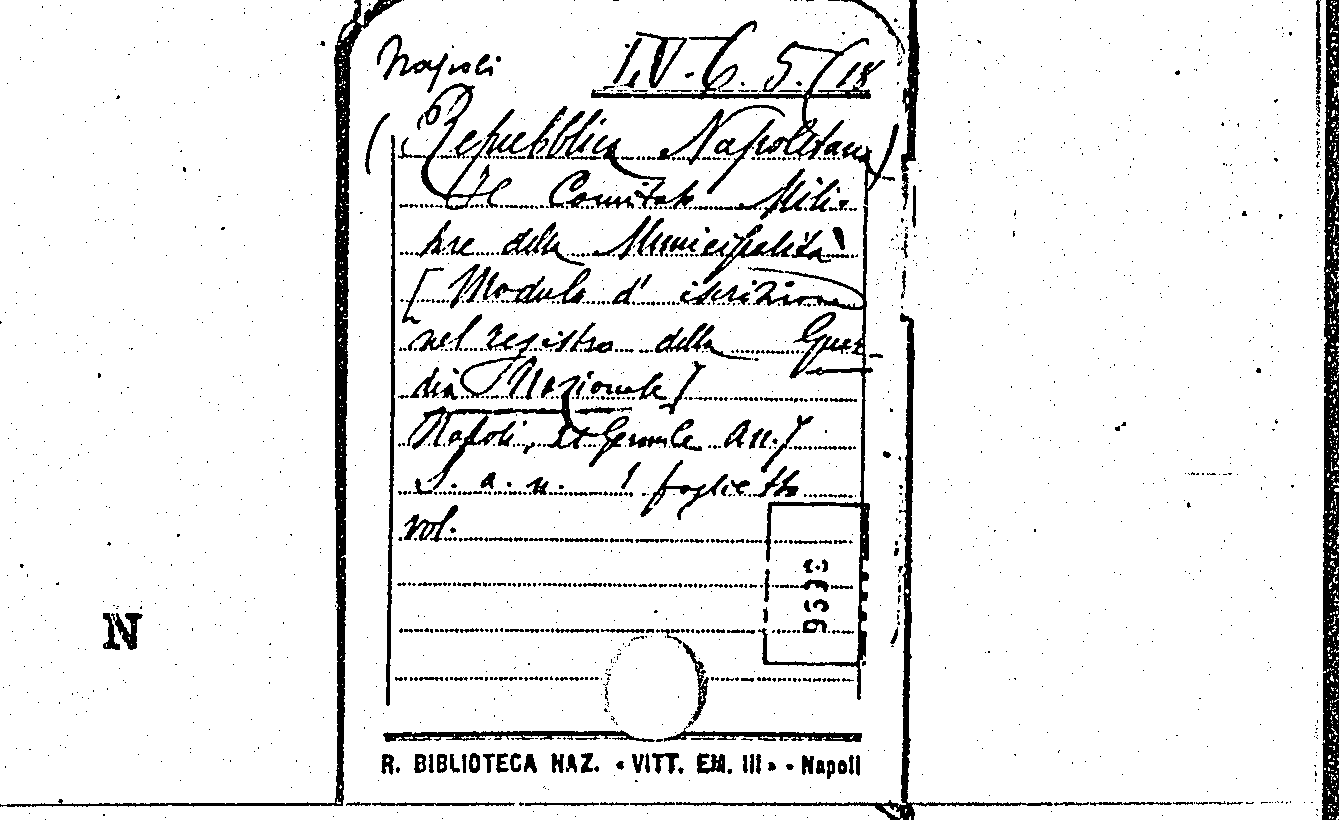 Napoli I.V.6.5.(18
(Repubblica Napoletana)
Il Comitato Mili-
tare della Municipalità
[Modulo d' iscrizione
nel registro della Guar-
dia Nazionale]
Napoli, Gennile an.7
S. a. n. 1 foglietto
vol.
N
R. BIBLIOTECA NAZ. «VITT. EM. III» - Napoli